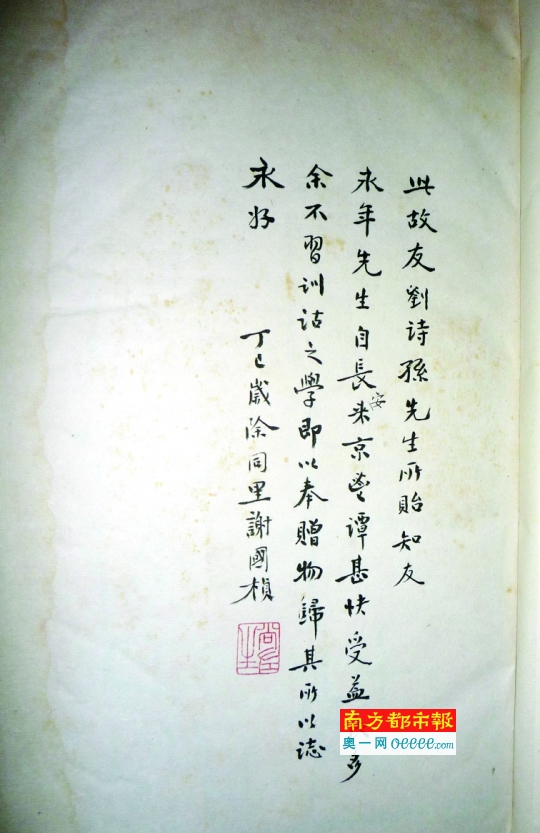 此故友劉詩孫先生所貽知友
永年先生自長安来京暢譚甚快受益多
余不習训诂之學即以奉贈物歸其所以誌
永好
丁巳歲除同里謝國楨
南方都市報
奥一网 oeeee.com